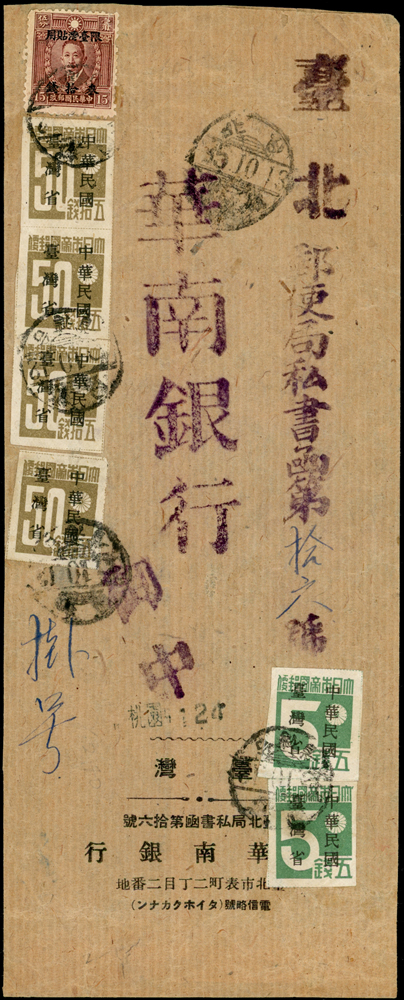 限臺灣貼用
叁拾錢
15 中華民國郵政 15
大日本帝國郵便
中華民國
臺灣省
50
五拾錢
大日本帝國郵便
中華民國
臺灣省
50
五拾錢
大日本帝國郵便
中華民國
臺灣省
50
五拾錢
大日本帝國郵便
中華民國
臺灣省
50
35.10.13
臺北郵便局私書函第拾六號
華南銀行
御中
掛号
桃園 124
大日本帝國郵便
中華民國
臺灣省
5
大日本帝國郵便
中華民國
臺灣省
5
五錢
臺灣
臺北局私書函第拾六號
華南銀行
臺北市表町二丁目二番地
電信略號(タイホクカナンン)